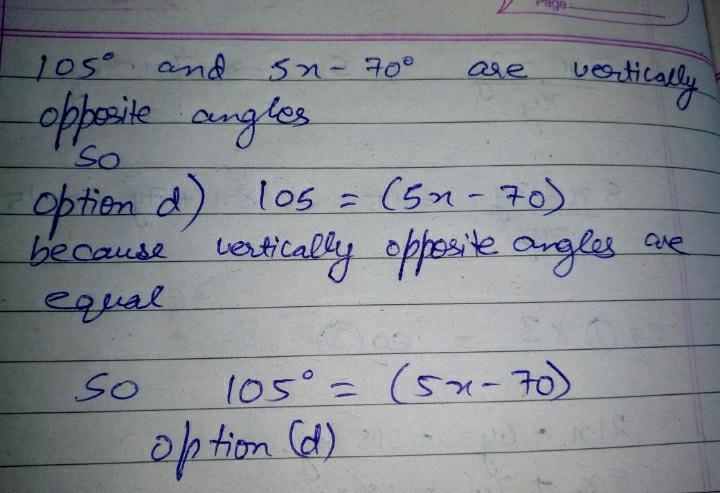 Page
105° and 5x - 70° are vertically
opposite angles
so
option d) 105 = (5x - 70)
because vertically opposite angles are
equal
so 105° = (5x - 70)
option (d)